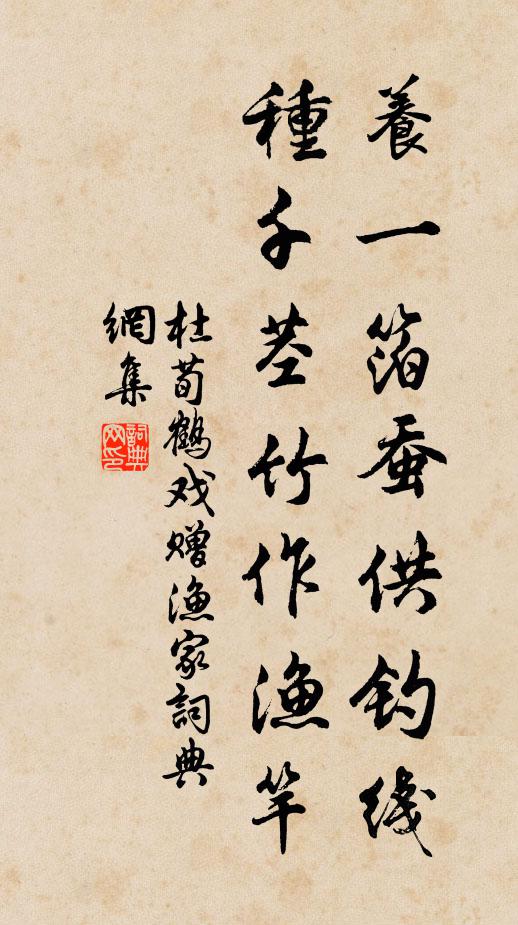 養一箔蚕供钓线
種千茎竹作漁竿
杜荀鶴戏赠漁家詞典
網集
詞典
网印